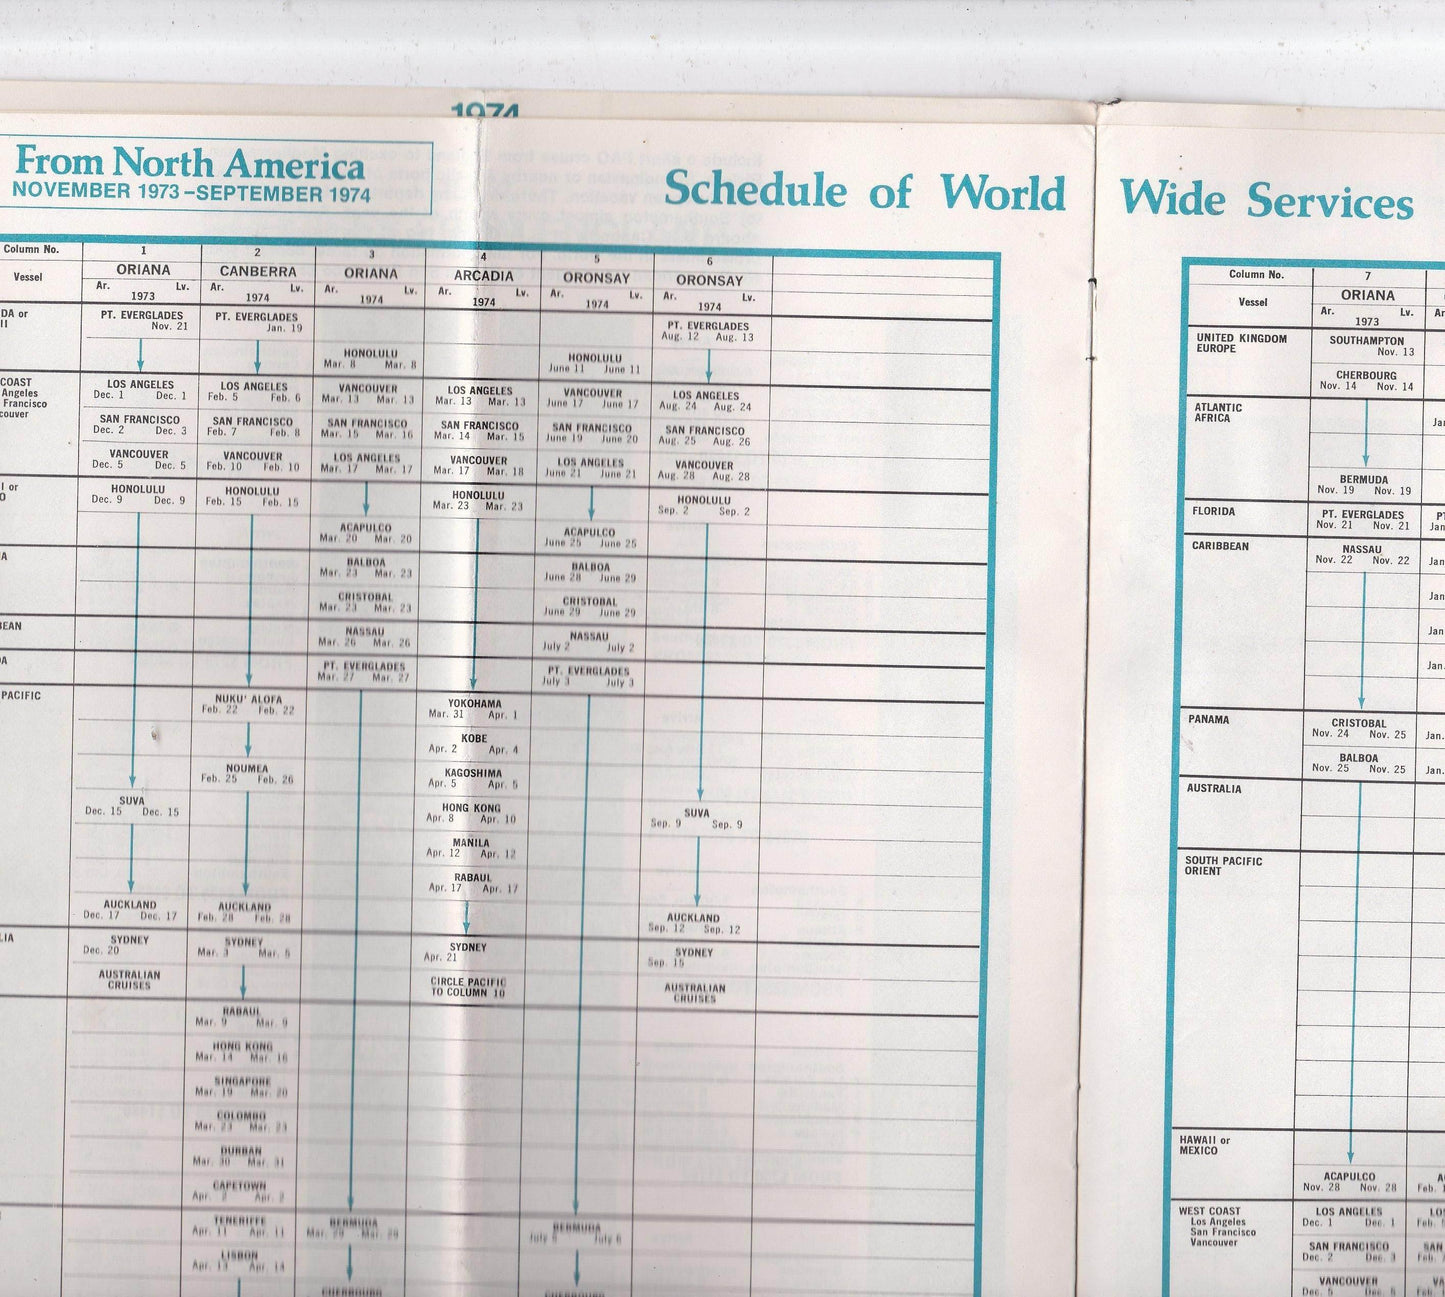 1974
From North America
NOVEMBER 1973–SEPTEMBER 1974
Schedule of World Wide Services
Column No. 1 2 3 4 5 6
Vessel ORIANA CANBERRA ORIANA ARCADIA ORONSAY ORONSAY
Ar. Lv. Ar. Lv. Ar. Lv. Ar. Lv. Ar. Lv. Ar. Lv.
1973 1974 1974 1974 1974 1974
DA or
II
COAST
Angeles
Francisco
couver
I or
O
A
BEAN
DA
PACIFIC
LIA
PT. EVERGLADES
Nov. 21
LOS ANGELES
Dec. 1 Dec. 1
SAN FRANCISCO
Dec. 2 Dec. 3
VANCOUVER
Dec. 5 Dec. 5
HONOLULU
Dec. 9 Dec. 9
SUVA
Dec. 15 Dec. 15
AUCKLAND
Dec. 17 Dec. 17
SYDNEY
Dec. 20
AUSTRALIAN
CRUISES
PT. EVERGLADES
Jan. 19
LOS ANGELES
Feb. 5 Feb. 6
SAN FRANCISCO
Feb. 7 Feb. 8
VANCOUVER
Feb. 10 Feb. 10
HONOLULU
Feb. 15 Feb. 15
NUKU' ALOFA
Feb. 22 Feb. 22
NOUMEA
Feb. 25 Feb. 26
AUCKLAND
Feb. 28 Feb. 28
SYDNEY
Mar. 3 Mar. 5
RABAUL
Mar. 9 Mar. 9
HONG KONG
Mar. 14 Mar. 16
SINGAPORE
Mar. 19 Mar. 20
COLOMBO
Mar. 23 Mar. 23
DURBAN
Mar. 30 Mar. 31
CAPETOWN
Apr. 2 Apr. 2
TENERIFFE
Apr. 11 Apr. 11
LISBON
Apr. 13 Apr. 14
HONOLULU
Mar. 8 Mar. 8
VANCOUVER
Mar. 13 Mar. 13
SAN FRANCISCO
Mar. 15 Mar. 16
LOS ANGELES
Mar. 17 Mar. 17
ACAPULCO
Mar. 20 Mar. 20
BALBOA
Mar. 23 Mar. 23
CRISTOBAL
Mar. 23 Mar. 23
NASSAU
Mar. 26 Mar. 26
PT. EVERGLADES
Mar. 27 Mar. 27
BERMUDA
Mar. 29 Mar. 29
CHERBOURG
LOS ANGELES
Mar. 13 Mar. 13
SAN FRANCISCO
Mar. 14 Mar. 15
VANCOUVER
Mar. 17 Mar. 18
HONOLULU
Mar. 23 Mar. 23
YOKOHAMA
Mar. 31 Apr. 1
KOBE
Apr. 2 Apr. 4
KAGOSHIMA
Apr. 5 Apr. 5
HONG KONG
Apr. 8 Apr. 10
MANILA
Apr. 12 Apr. 12
RABAUL
Apr. 17 Apr. 17
SYDNEY
Apr. 21
CIRCLE PACIFIC
TO COLUMN 10
HONOLULU
June 11 June 11
VANCOUVER
June 17 June 17
SAN FRANCISCO
June 19 June 20
LOS ANGELES
June 21 June 21
ACAPULCO
June 25 June 25
BALBOA
June 28 June 29
CRISTOBAL
June 29 June 29
NASSAU
July 2 July 2
PT. EVERGLADES
July 3 July 3
BERMUDA
July 6
CHERBOURG
PT. EVERGLADES
Aug. 12 Aug. 13
LOS ANGELES
Aug. 24 Aug. 24
SAN FRANCISCO
Aug. 25 Aug. 26
VANCOUVER
Aug. 28 Aug. 28
HONOLULU
Sep. 2 Sep. 2
SUVA
Sep. 9 Sep. 9
AUCKLAND
Sep. 12 Sep. 12
SYDNEY
Sep. 15
AUSTRALIAN
CRUISES
Column No. 7
Vessel ORIANA
Ar. Lv.
1973
UNITED KINGDOM
EUROPE
SOUTHAMPTON
Nov. 13
CHERBOURG
Nov. 14 Nov. 14
ATLANTIC
AFRICA
BERMUDA
Nov. 19 Nov. 19
FLORIDA
PT. EVERGLADES
Nov. 21 Nov. 21
CARIBBEAN
NASSAU
Nov. 22 Nov. 22
PANAMA
CRISTOBAL
Nov. 24 Nov. 25
BALBOA
Nov. 25 Nov. 25
AUSTRALIA
SOUTH PACIFIC
ORIENT
HAWAII or
MEXICO
ACAPULCO
Nov. 28 Nov. 28
WEST COAST
Los Angeles
San Francisco
Vancouver
LOS ANGELES
Dec. 1 Dec. 1
SAN FRANCISCO
Dec. 2 Dec. 3
VANCOUVER
Dec. 5 Dec. 5
Ar
Jan
PT.
Jan
Jan.
Jan
Jan
Jan.
Jan.
Jan.
Feb.
LOS
Feb.
SAN
Feb.